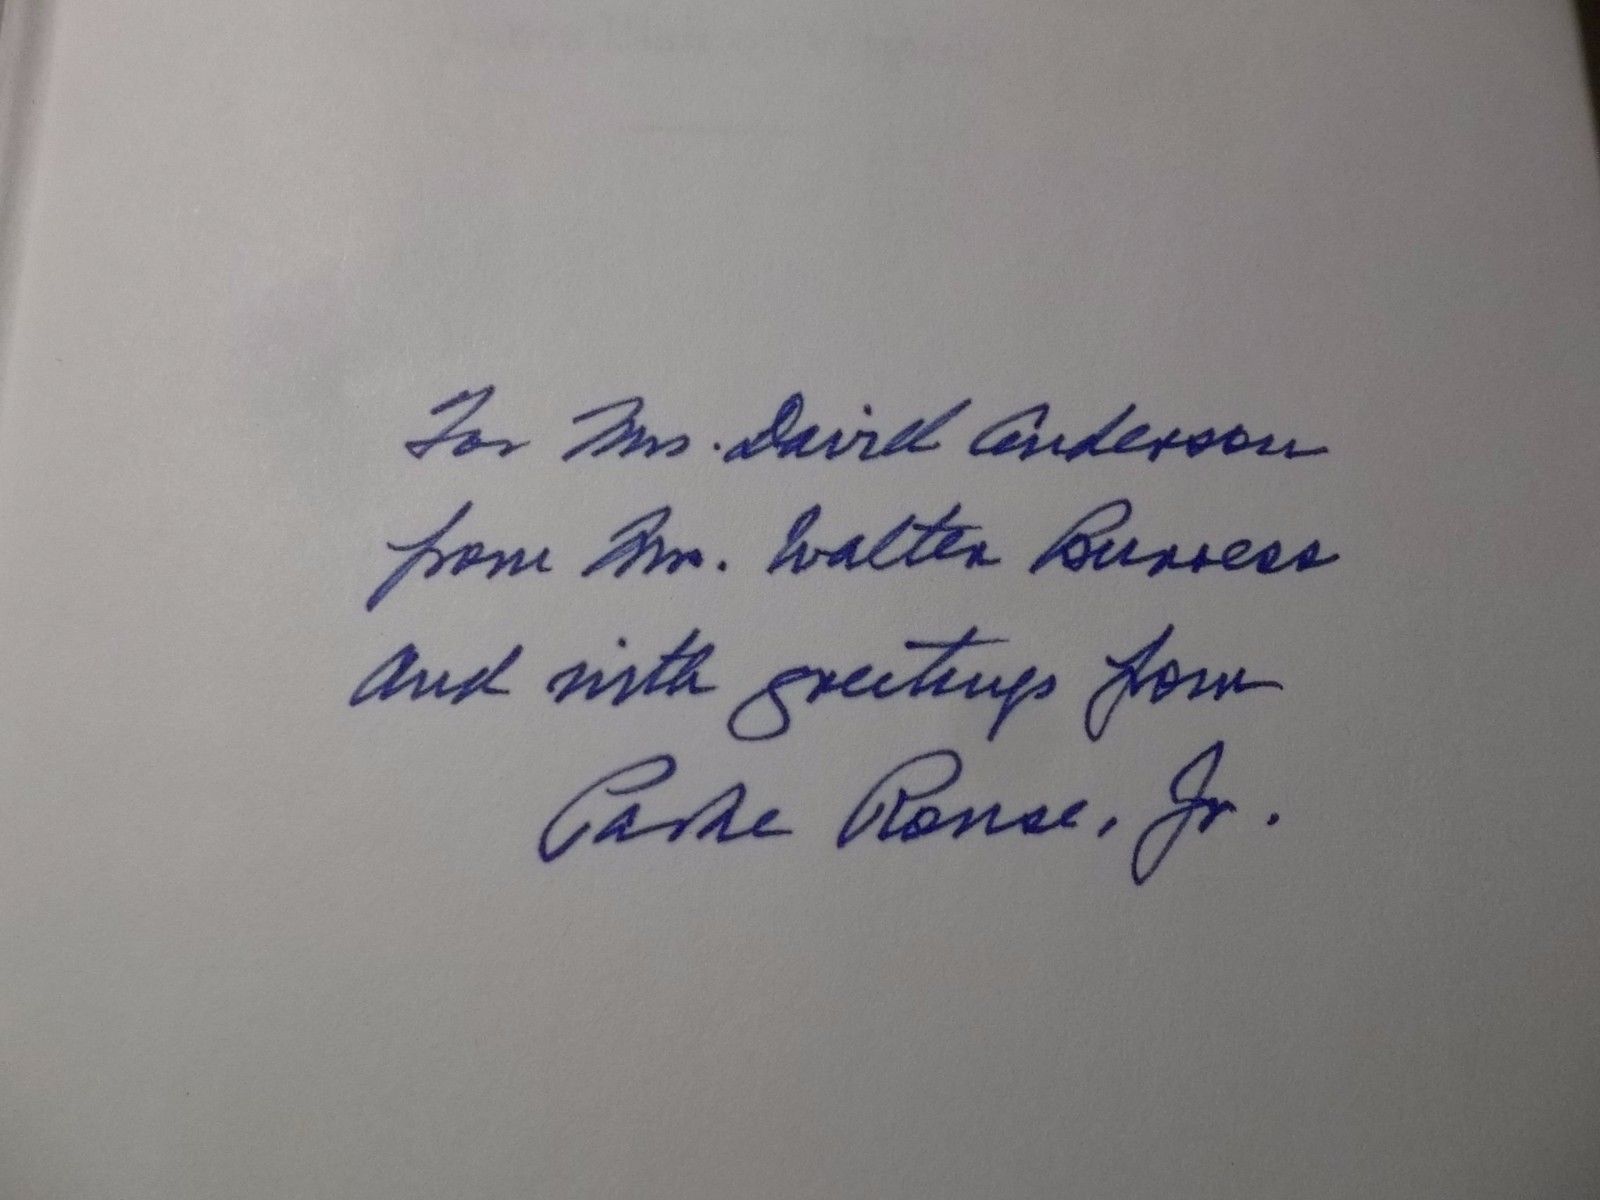 For Mrs. David Anderson
from Mr. Walter Burress
and with greetings from
Parke Rouse, Jr.